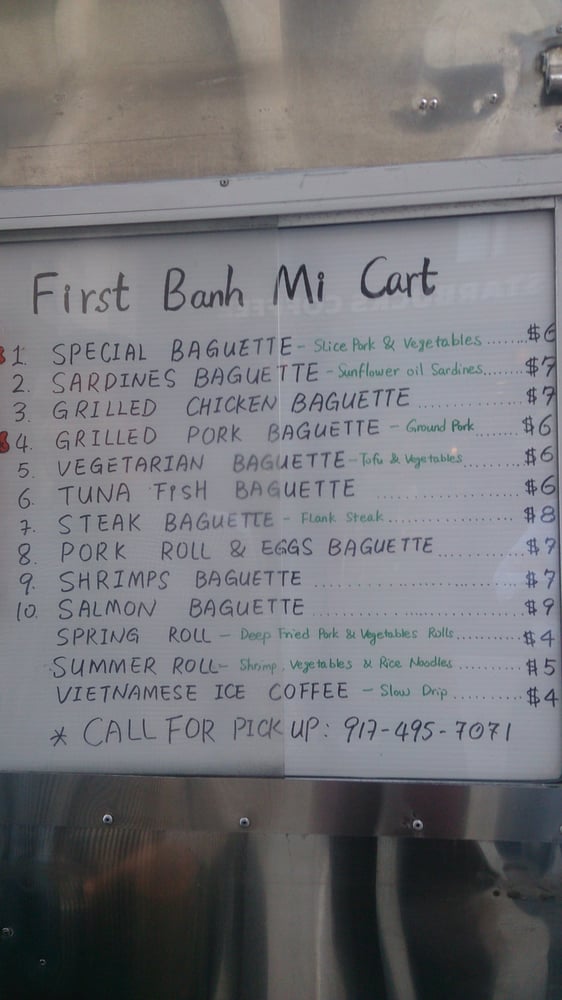 First Banh Mi Cart
1. SPECIAL BAGUETTE - Slice Pork & Vegetables ...... $6
2. SARDINES BAGUETTE - Sunflower oil Sardines..... $7
3. GRILLED CHICKEN BAGUETTE .............. $7
4. GRILLED PORK BAGUETTE - Ground Pork....... $6
5. VEGETARIAN BAGUETTE - Tofu & Vegetables......... $6
6. TUNA FISH BAGUETTE .................. $6
7. STEAK BAGUETTE - Flank Steak................ $8
8. PORK ROLL & EGGS BAGUETTE........... $7
9. SHRIMPS BAGUETTE ........................ $7
10. SALMON BAGUETTE ........................ $9
SPRING ROLL - Deep Fried Pork & Vegetables Rolls........ $4
SUMMER ROLL - Shrimp, Vegetables & Rice Noodles......... $5
VIETNAMESE ICE COFFEE - Slow Drip.......... $4
* CALL FOR PICK UP: 917-495-7071
STARBUCKS COFFEE